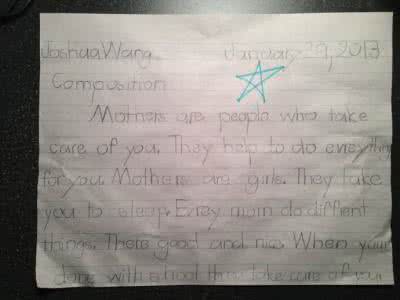 Joshua Wang January 29, 2013
Composition
Mothers are people who take
care of you. They help to do evreything
for you. Mothers are girls. They take
you to sleep. Evrey mom do diffient
things. There good and nice. When your
done with school they take care of your